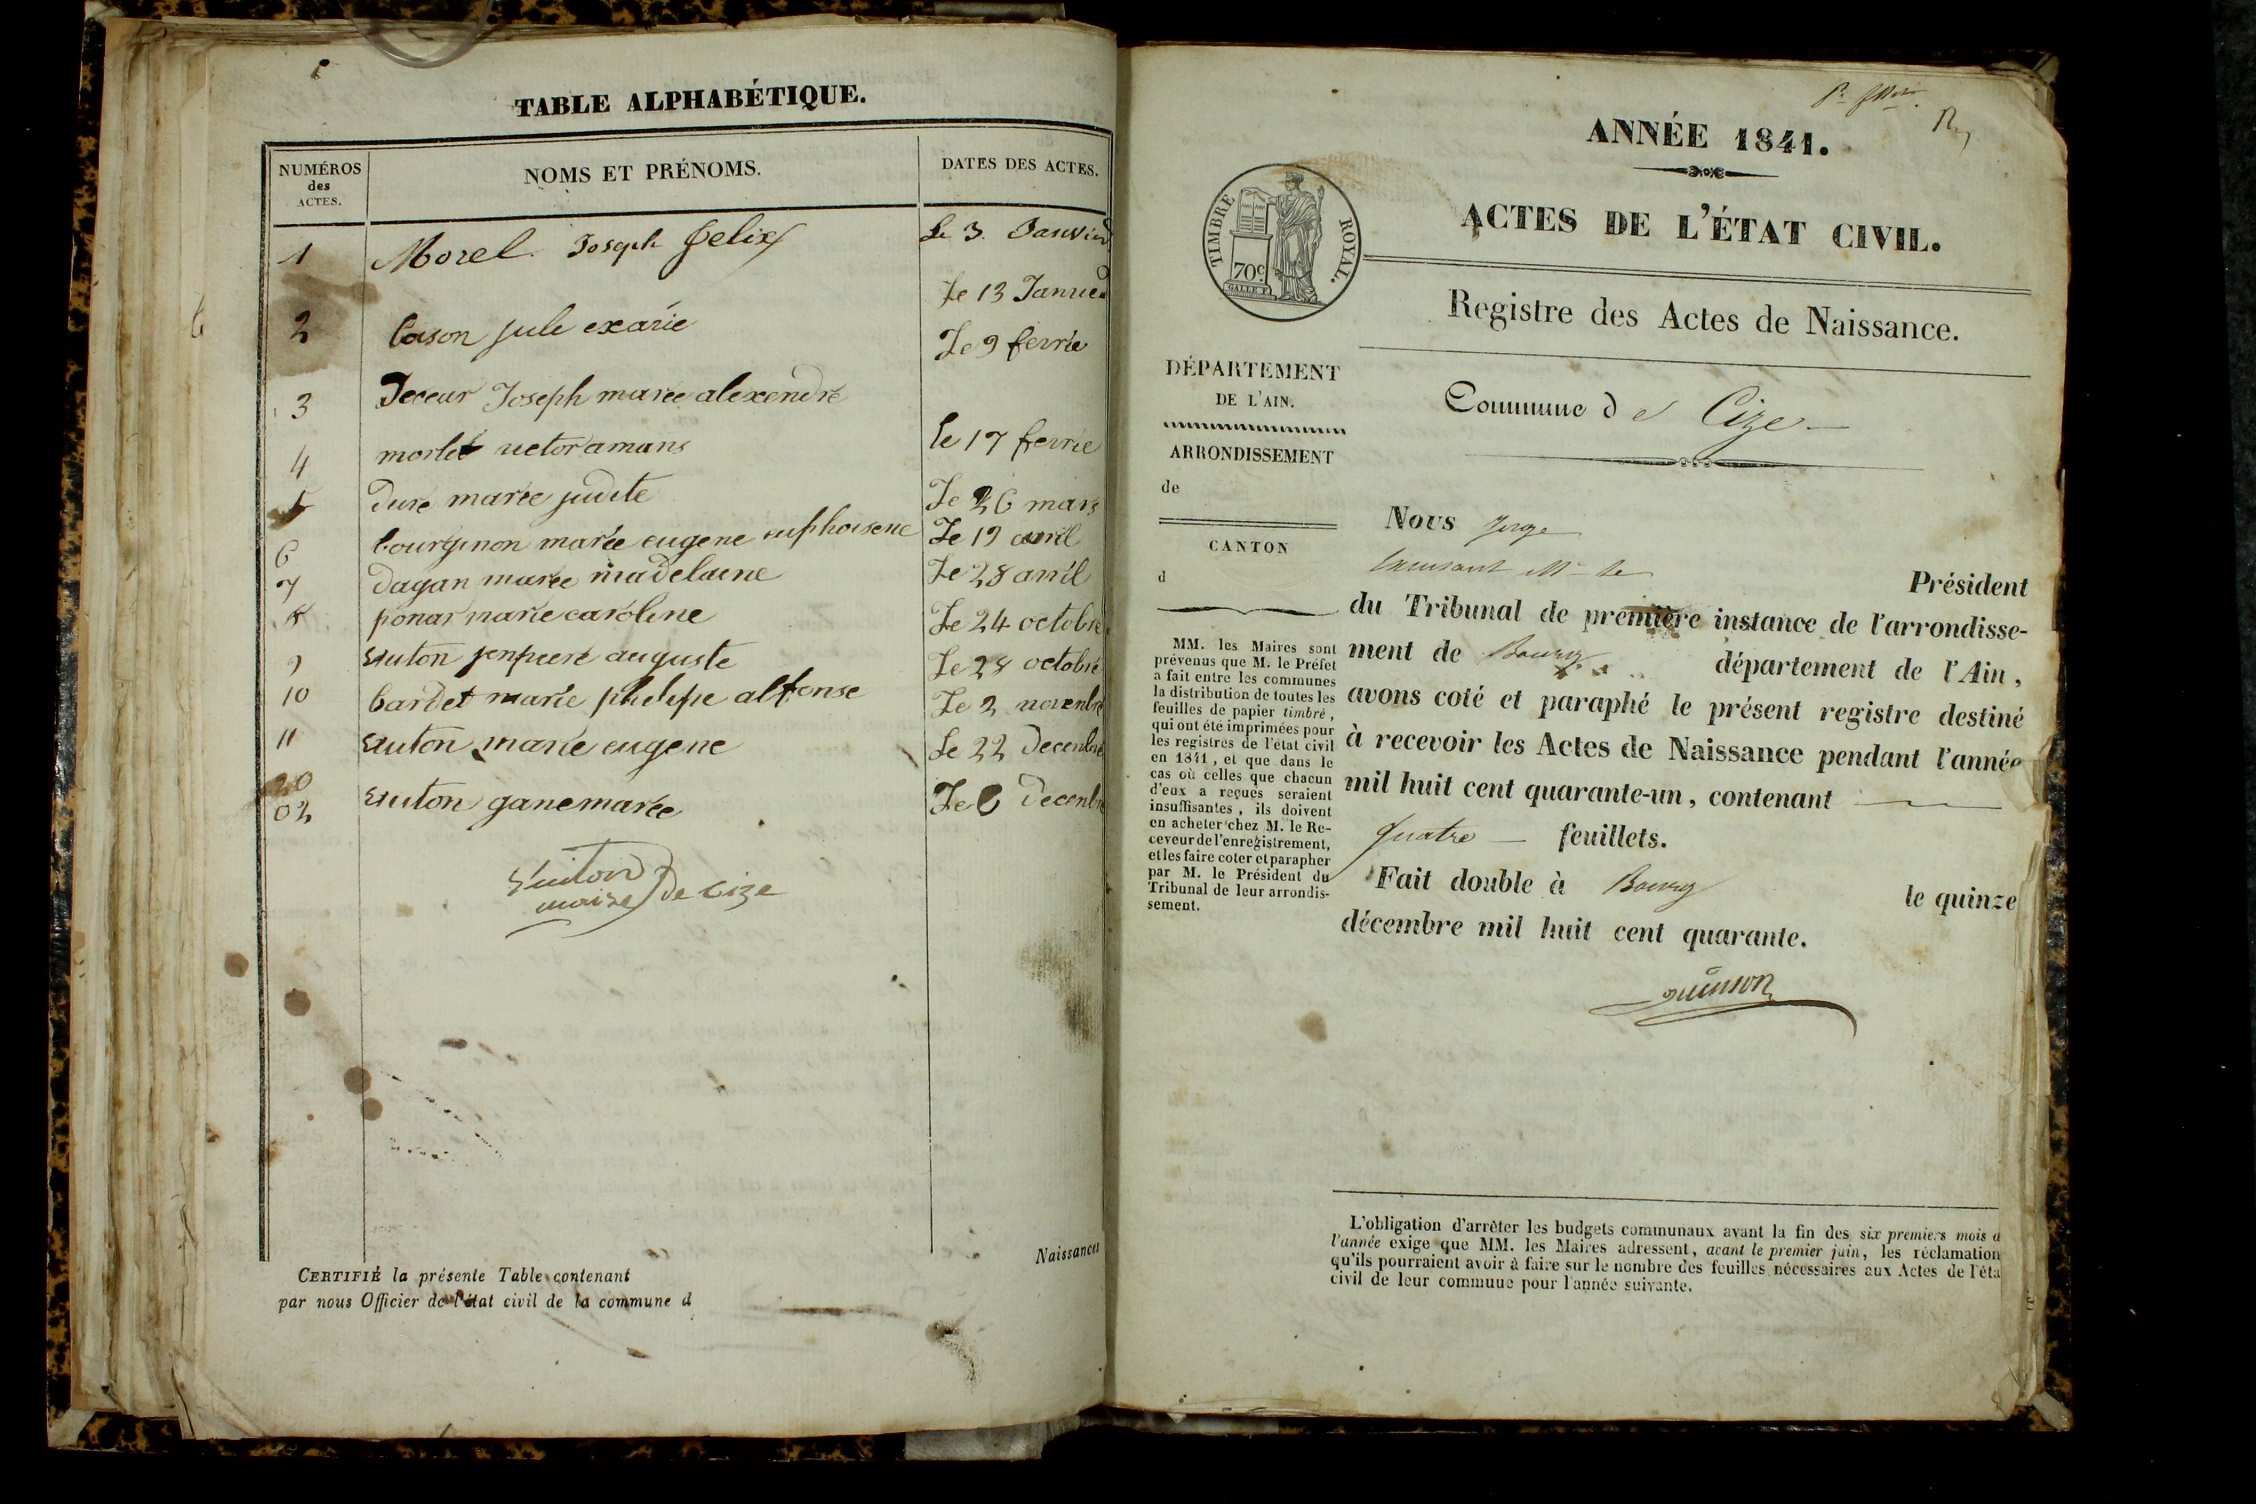 TABLE ALPHABÉTIQUE.
NUMÉROS des ACTES.
NOMS ET PRÉNOMS.
DATES DES ACTES.
1 Morel Joseph felix Le 3 Janvier
Le 13 Janvie
2 Cason jule exavie
Le 9 fevrie
3 Deceur Joseph marie alexendre
4 morlet victor amans le 17 fevrie
5 dure marie judite Le 26 mars
6 bourginon marie eugene Le 19 avril
7 dagan marie madelaene Le 28 avril
8 ponar marie caroline Le 24 octobre
9 suiton auguste Le 28 octobre
10 bardet marie philipe alfonse Le 2 novenbre
11 suiton marie eugene Le 22 decenbre
20
02 suiton gane marie Le 6 decenbre
Suiton
maire de cize
Naissances
CERTIFIÉ la présente Table contenant
par nous Officier de l'état civil de la commune d
ANNÉE 1841.
TIMBRE ROYAL.
70c.
GALLE F.
ACTES DE L'ÉTAT CIVIL.
Registre des Actes de Naissance.
Commune de Cize
DÉPARTEMENT
DE L'AIN.
ARRONDISSEMENT
de
CANTON
d
MM. les Maires sont
prévenus que M. le Préfet
a fait entre les communes
la distribution de toutes les
feuilles de papier timbré,
qui ont été imprimées pour
les registres de l'état civil
en 1841, et que dans le
cas où celles que chacun
d'eux a reçues seraient
insuffisantes, ils doivent
en acheter chez M. le Re-
ceveur de l'enregistrement,
et les faire coter et parapher
par M. le Président du
Tribunal de leur arrondis-
sement.
Nous juge
Président
du Tribunal de première instance de l'arrondisse-
ment de Bourg département de l'Ain,
avons coté et paraphé le présent registre destiné
à recevoir les Actes de Naissance pendant l'année
mil huit cent quarante-un, contenant
quatre feuillets.
Fait double à Bourg le quinze
décembre mil huit cent quarante.
quinson
L'obligation d'arrêter les budgets communaux avant la fin des six premiers mois d
l'année exige que MM. les Maires adressent, avant le premier juin, les réclamation
qu'ils pourraient avoir à faire sur le nombre des feuilles nécessaires aux Actes de l'éta
civil de leur commune pour l'année suivante.